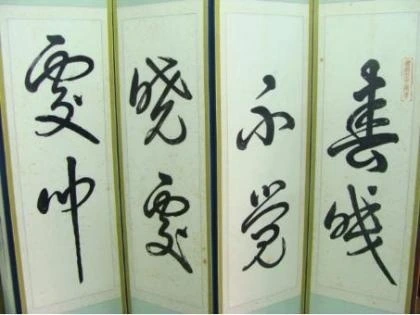 春眠
不覺
曉處
處聞